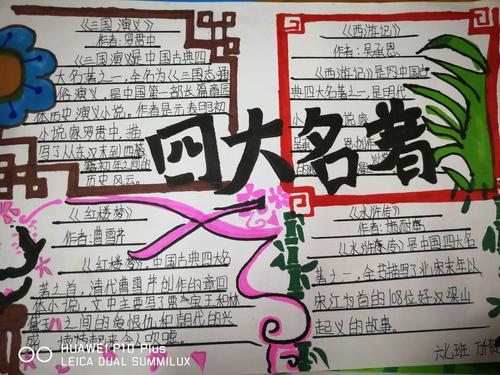 《三国演义》
作者：罗贯中
《三国演义》是中国古典四
大名著之一，全名为《三国志通
俗演义》是中国第一部长篇章回
体历史演义小说。作者是元末明初
小说家罗贯中，描
写了从东汉末到西晋
初年之间的
历史风云。
《西游记》
作者：吴承恩
《西游记》是四中国古
典四大名著之一，是明代
小
四大名著
《红楼梦》
作者：曹雪芹
《红楼梦》，中国古典四大名
著之首，清代曹雪芹创作的章回
体小说，文中主要写了贾宝玉和林
之间的爱恨仇和朝代的兴
《水浒传》
作者：施耐庵
《水浒传》是中国四大名
著之一，全书描写了北宋末年以
宋江为首的108位好汉梁山
起义的故事。
六七班
HUAWEI P10 Plus
LEICA DUAL SUMMILUX